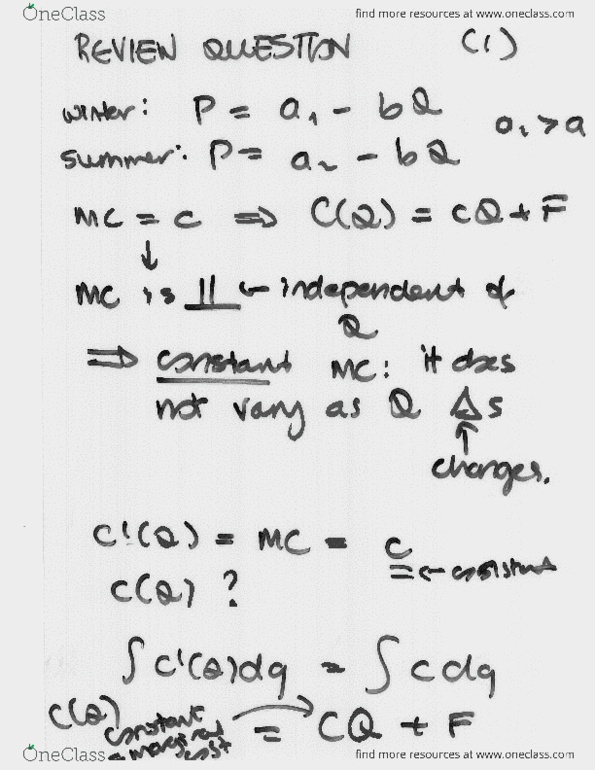 OneClass find more resources at www.oneclass.com
REVIEW QUESTION (1)
winter: P = a₁ - bQ
a₁ > a
summer: P = a₂ - bQ
MC = c ⇒ C(Q) = cQ + F
↓
MC is ⊥⊥ ← independent of
Q
⇒ constant MC: it does
not vary as Q Δs
↑
changes.
C'(Q) = MC = c
= ← constant
C(Q) ?
∫ C'(Q)dq = ∫ c dq
C(Q) = CQ + F
constant
marginal
cost
OneClass find more resources at www.oneclass.com